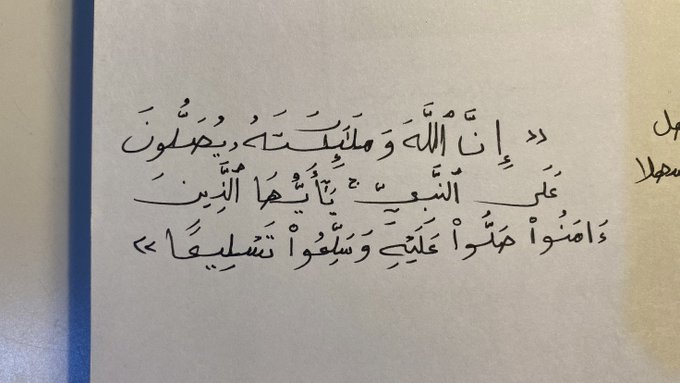 « إِنَّ ٱللَّهَ وَمَلَٰٓئِكَتَهُۥ يُصَلُّونَ
عَلَى ٱلنَّبِيِّ ۚ يَٰٓأَيُّهَا ٱلَّذِينَ
ءَامَنُوا۟ صَلُّوا۟ عَلَيْهِ وَسَلِّمُوا۟ تَسْلِيمًا »
سهلا